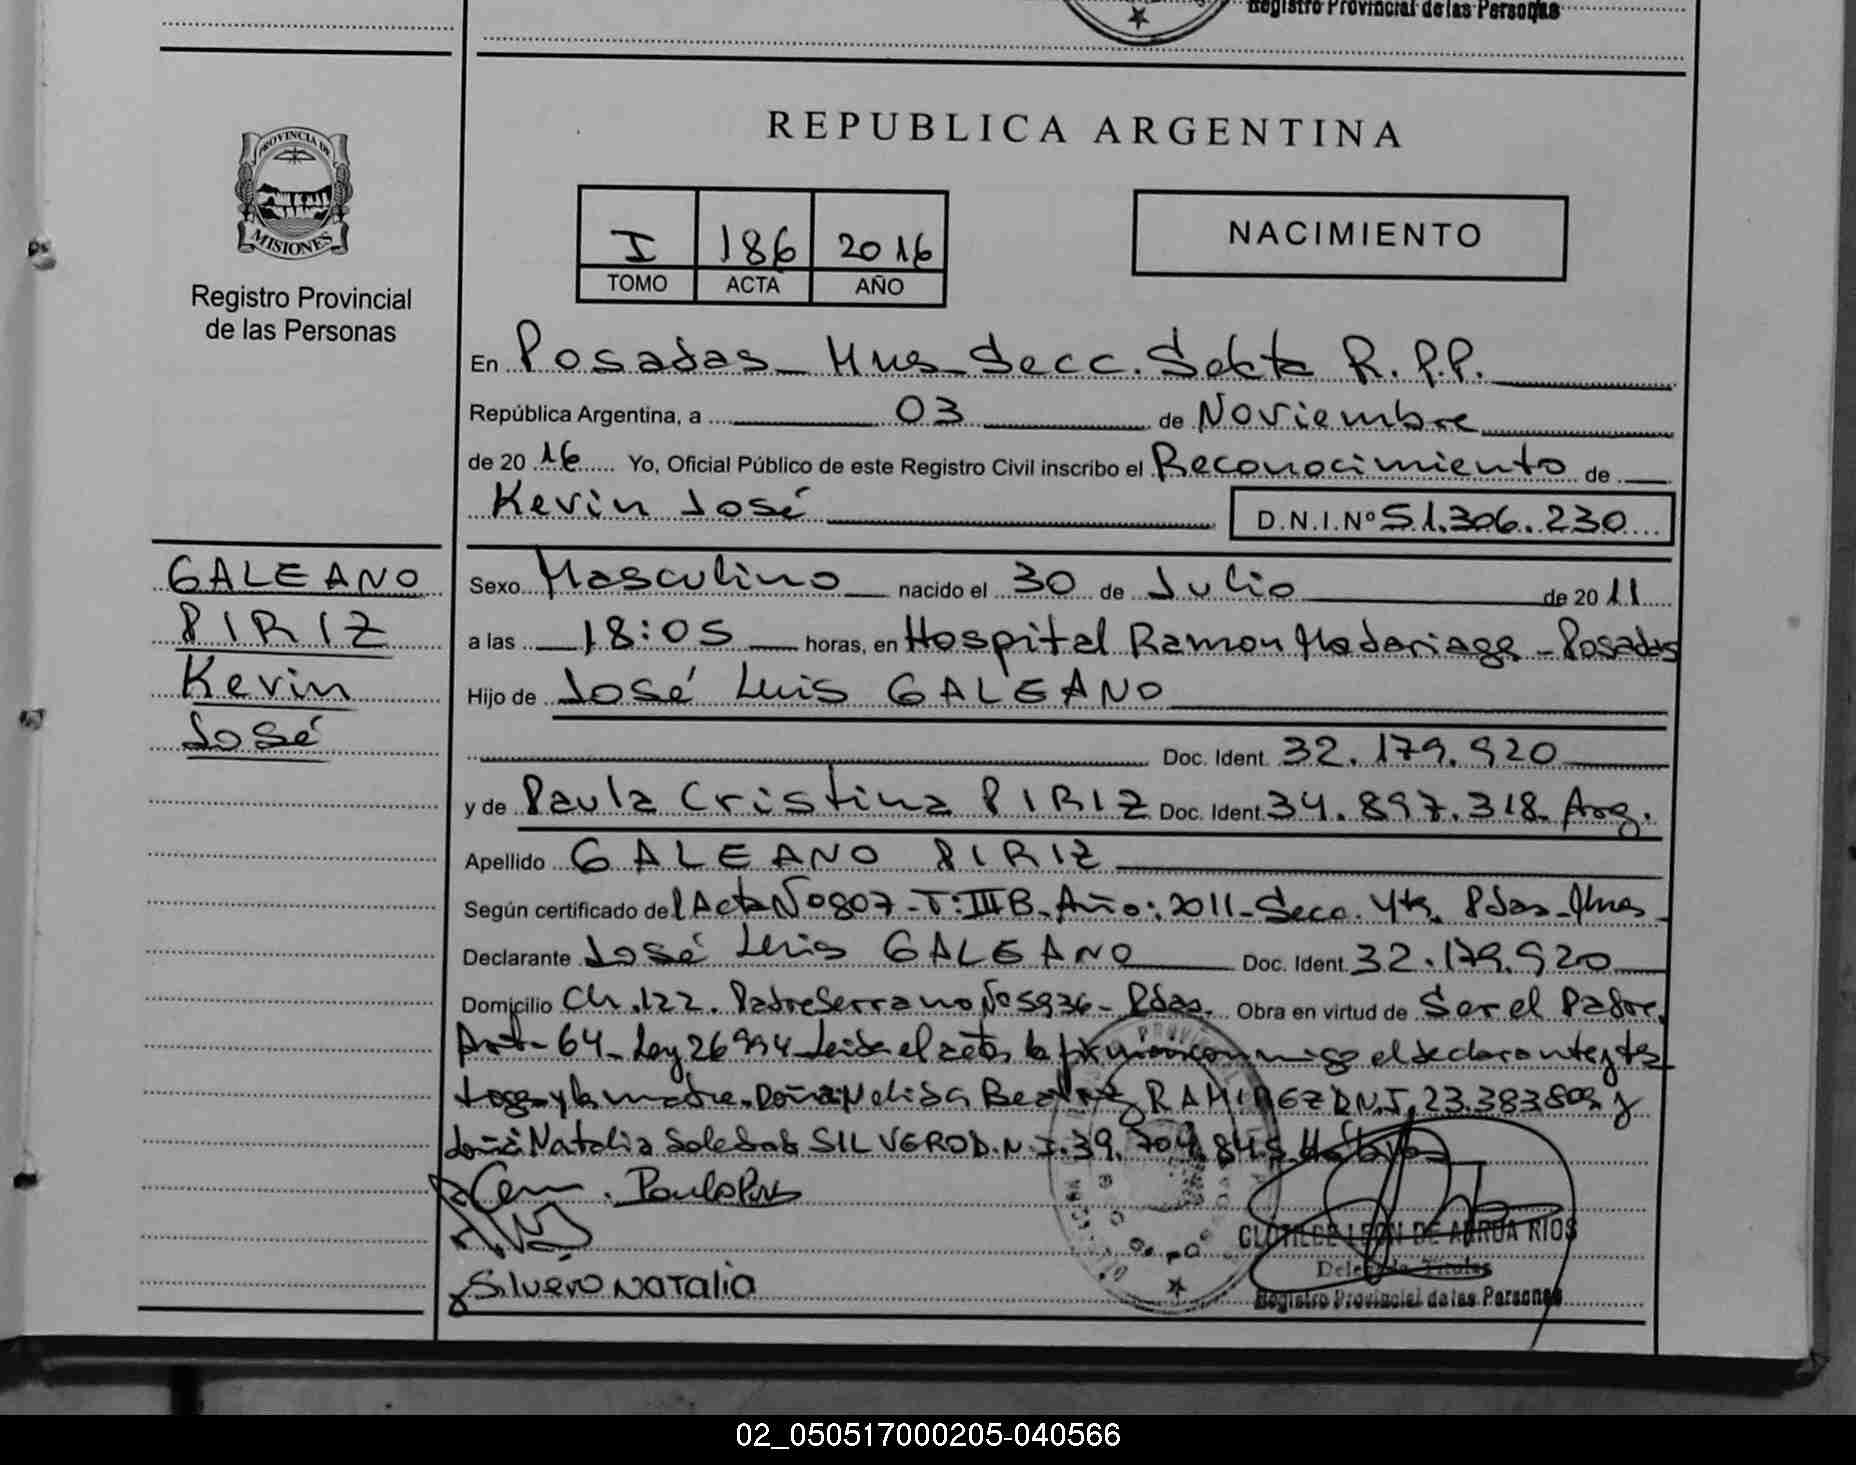 Registro Provincial de las Personas
REPUBLICA ARGENTINA
PROVINCIA DE
MISIONES
Registro Provincial
de las Personas
I 186 2016
TOMO ACTA AÑO
NACIMIENTO
En Posadas Mnes Secc. Sexta R.P.P.
República Argentina, a 03 de Noviembre
de 2016 Yo, Oficial Público de este Registro Civil inscribo el Reconocimiento de
Kevin José D.N.I.Nº 51.306.230
GALEANO
PIRIZ
Kevin
José
Sexo Masculino nacido el 30 de Julio de 2011
a las 18:05 horas, en Hospital Ramon Madariaga - Posadas
Hijo de José Luis GALEANO
Doc. Ident. 32.179.920
y de Paula Cristina PIRIZ Doc. Ident. 34.897.318. Arg.
Apellido GALEANO PIRIZ
Según certificado del Acta Nº 807 - T: III B - Año: 2011 - Secc. 4ta. Pdas - Mnes
Declarante José Luis GALEANO Doc. Ident. 32.179.920
Domicilio Ch. 122. Padre Serrano Nº 5936 - Pdas. Obra en virtud de Ser el Padre.
Art - 64 - Ley 26994 - Leida el acta, la firman conmigo el declarante, tes
tigos y la madre. Doña Nelida Beatriz RAMIREZ D.N.I. 23.383.803 y
doña Natalia Soledad SILVERO D.N.I. 39.704.845
Silvero NATALIA
CLOTILDE LEON DE ARRUA RIOS
Delegada Titular
Registro Provincial de las Personas
02_050517000205-040566